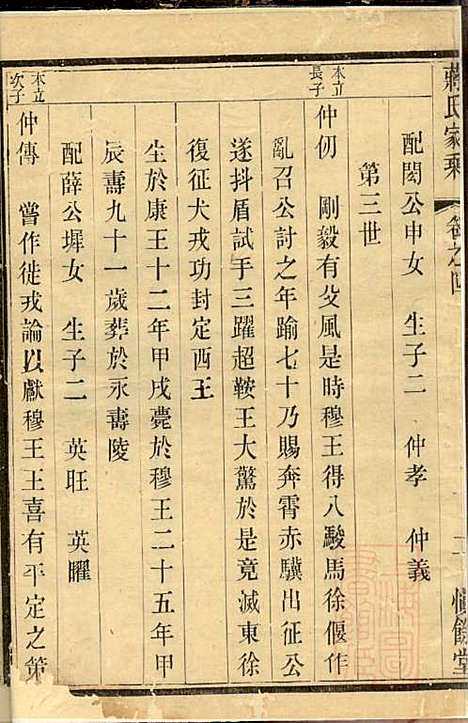 蔣氏家乘
卷之四
慎餘堂
配閎公申女　生子二　仲孝　仲義
第三世
本立長子
仲仞　剛毅有父風是時穆王得八駿馬徐偃作
亂召公討之年踰七十乃賜奔霄赤驥出征公
遂抖盾試手三躍超鞍王大驚於是竟滅東徐
復征犬戎功封定西王
生於康王十二年甲戌薨於穆王二十五年甲
辰壽九十一歲葬於永壽陵
配薛公墀女　生子二　英旺　英曜
本立次子
仲傳　嘗作徙戎論以獻穆王王喜有平定之策